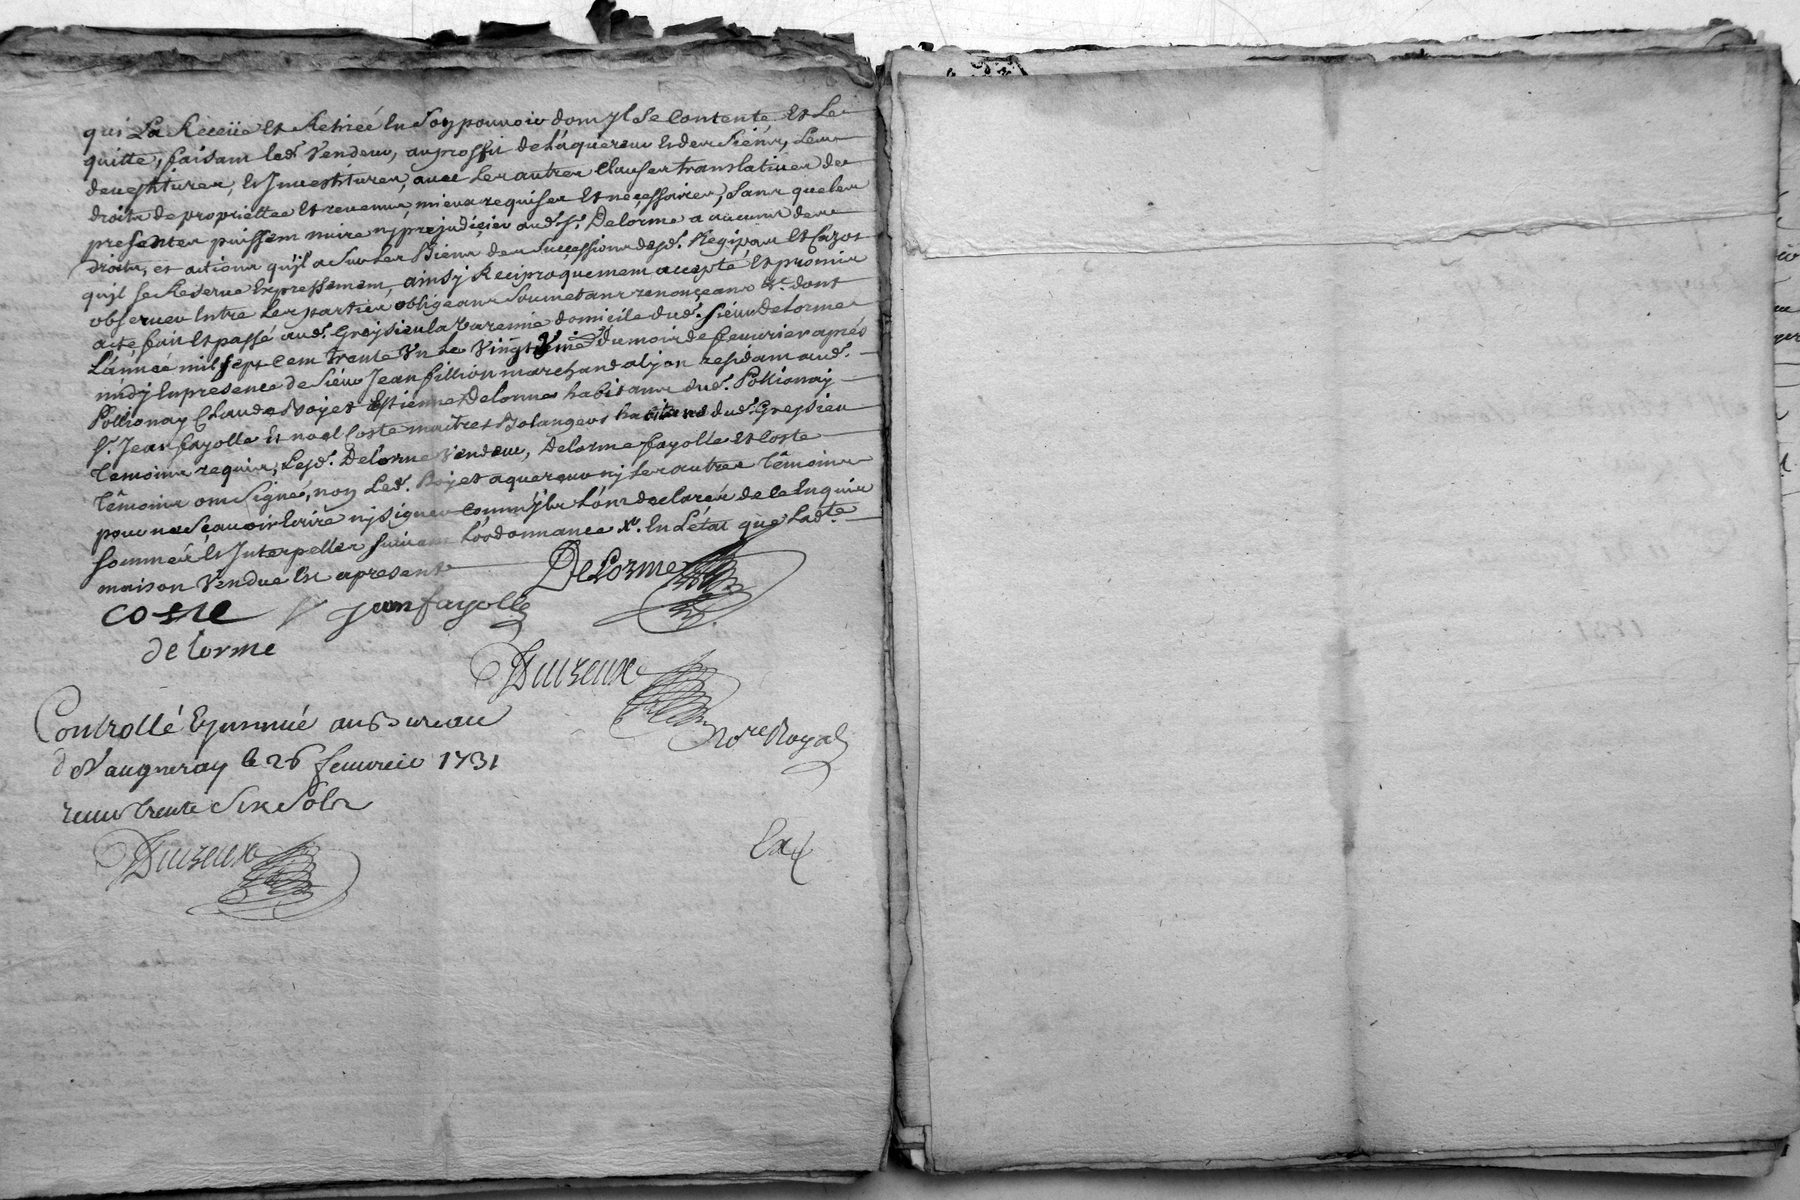 qui La Receüe et Retirée En Son pouvoir dom yl Se Contente Et Le
quitte, faisam led. Vendeur, au proffit de l'aquereur Et des Siens, Leurs
devestitures, Et Jnvestitures, avec Les autres Clauses translatives de
droits de propriettee Et revenus, mieux requises Et nécessaires, Sans que les
presentes puissem nuire ny prejudicier aud. Sr. Delorme a aucuns de
droits, et actions qu'il a Sur Les Biens des Successions desd. Regipas Et Cazot
qu'il Se Reserve Expressemem, ainsy Reciproquemem accepté, Et promis
observer Entre Les parties obligeans Soumetans renonçeans &c. dont
acte fait Et passé aud. Greysieu la Varenne domicile dud. Sieur Delorme
L'année mil Sept Cem trente Un Le Vingt du mois de feuvrier aprés
midy En presence de Siéur Jean fillion marchand a lyon residam aud.
Pollionay Claude Boyet Estienne Delorme habitans dud. Pollionay
Sr. Jean fayolle Et noel Coste maitres Bolangers habitans dud. Greysieu
temoins requis, Lesd. Delorme Vendeur, Delorme fayolle Et Coste
têmoins om Signé, non Led. Boyet aquereur ny Les autres têmoins
pour ne Sçavoir Ecrire ny Signer Comm'ylz L'om declarér de ce Enquis
Sommér Et Jnterpeller Suivam L'ordonnance &. En L'état que Ladte.
maison Vendue Est apresent
Delorme
Coste jean fayolle
delorme
Duzeux
Nore. Royal
Controllé Et Jnsinué au Bureau
de Vaugneray le 26 feuvreir 1731
receu trente Six Sols
Duzeux
Ex